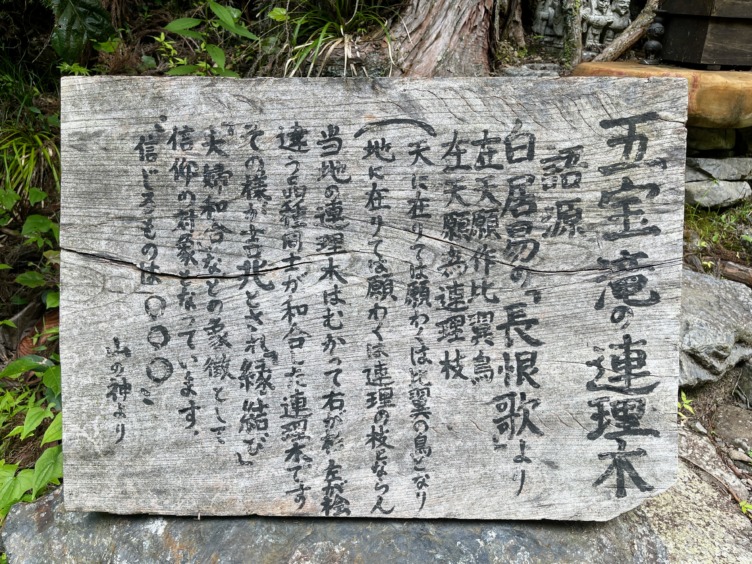 五宝滝の連理木
語源
白居易の「長恨歌」より
在天願作比翼鳥
在天願為連理枝
（天に在りては願わくは比翼の鳥となり
地に在りては願わくは連理の枝とならん
当地の連理木はむかって右が杉 左が桧
違う品種同士が和合した連理木です
その様が吉兆とされ「縁結び」
"夫婦和合"などの象徴として
信仰の対象となっています.
"信じるものは〇〇〇〇"
山の神より